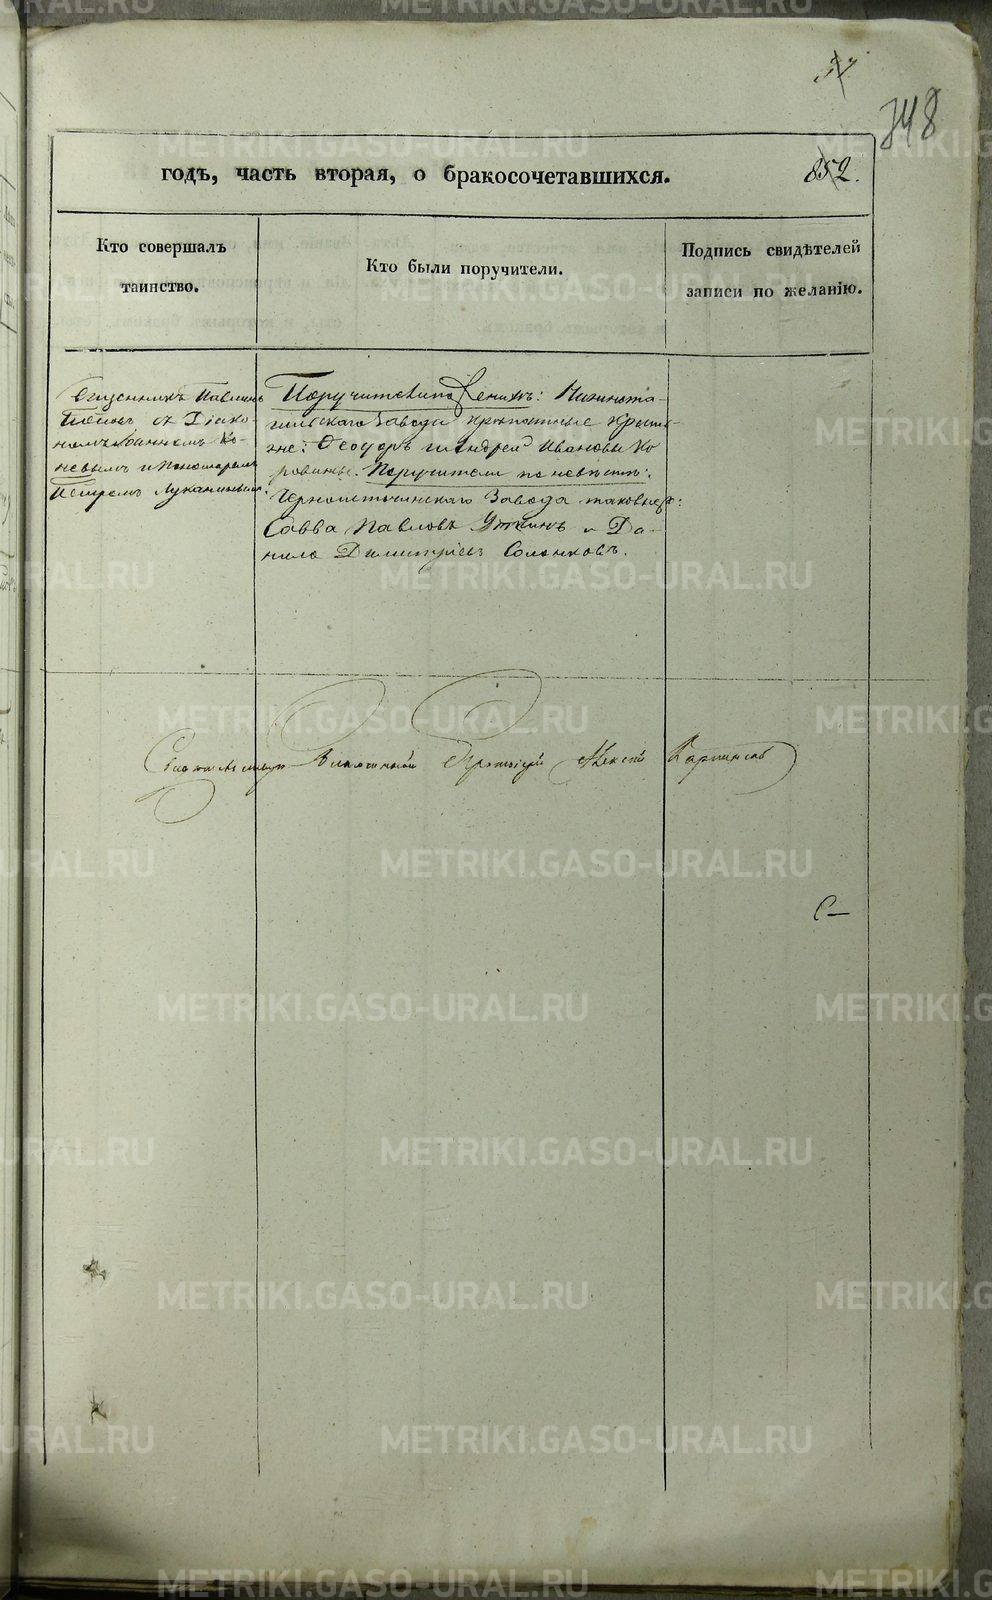 348
852.
годъ, часть вторая, о бракосочетавшихся.
Кто совершалъ
таинство.
Кто были поручители.
Подпись свидѣтелей
записи по желанію.
Павлинъ
съ Діако-
номъ Іоанномъ Ко-
невымъ и Пономаремъ
Петромъ Луканинымъ.
Поручители по Женихѣ: Нижнета-
гильскаго Завода крѣпостные крестья-
не: Ѳеодоръ и Андрей Ивановы Ко
ровины. Поручители по невѣстѣ:
Черноисточинскаго Завода таковые:
Савва Павловъ Уткинъ и Да-
нило Димитріевъ Солонковъ.
Благочинный Протоіерей Алексѣй Карпинскій
METRIKI.GASO-URAL.RU